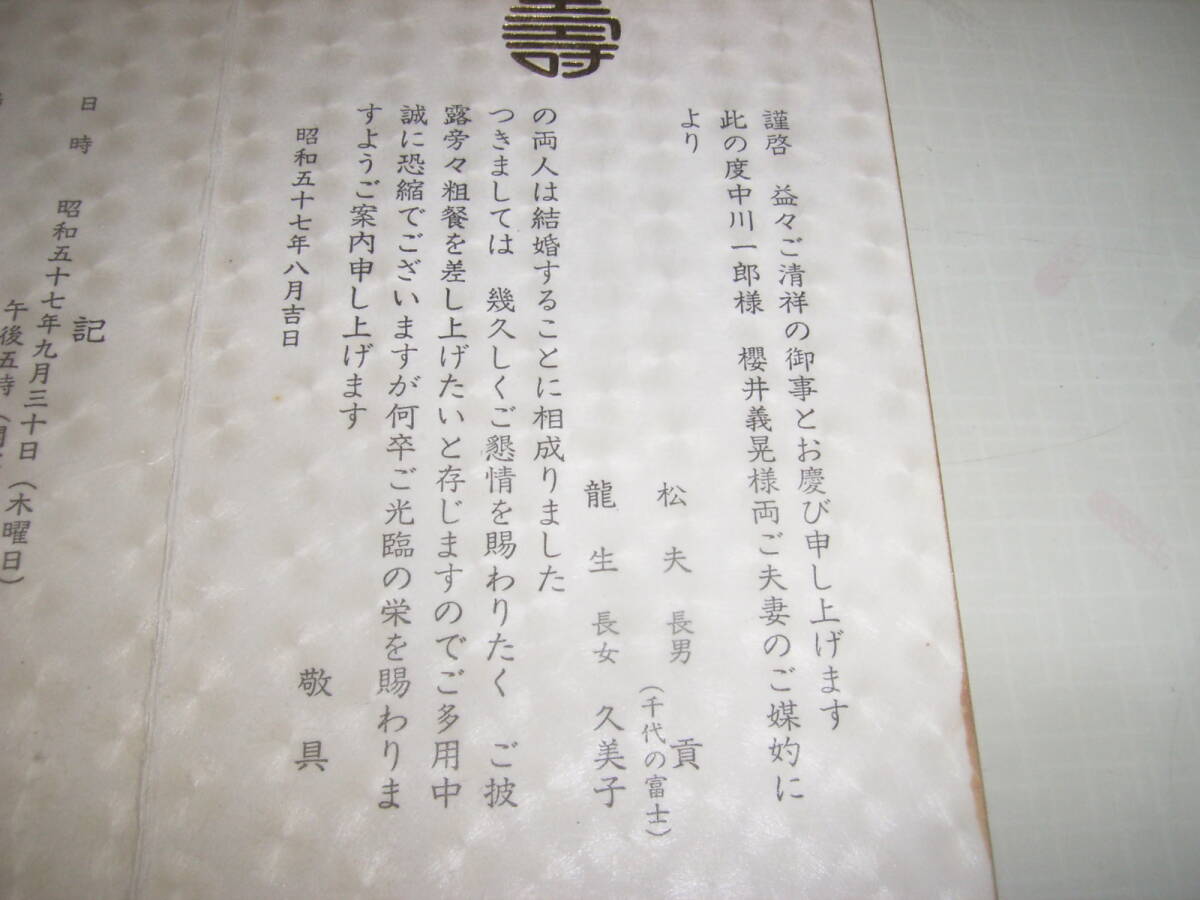 壽
謹啓　益々ご清祥の御事とお慶び申し上げます
此の度中川一郎様　櫻井義晃様両ご夫妻のご媒妁に
より
松夫　長男　貢
（千代の富士）
龍生　長女　久美子
の両人は結婚することに相成りました
つきましては　幾久しくご懇情を賜わりたく　ご披
露旁々粗餐を差し上げたいと存じますのでご多用中
誠に恐縮でございますが何卒ご光臨の栄を賜わりま
すようご案内申し上げます
敬具
昭和五十七年八月吉日
記
日時　昭和五十七年九月三十日（木曜日）
午後五時